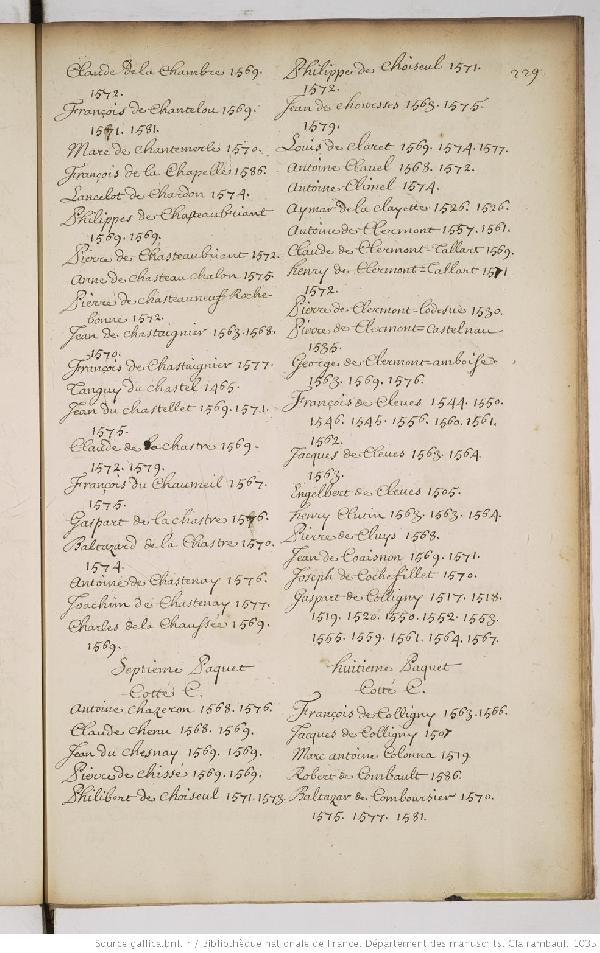 229
Claude de la Chambre 1569.
1572.
François de Chantelou 1569.
1571. 1581.
Marc de Chantemerle 1570.
François de la Chapelle 1586.
Lancelot de Chardon 1574.
Philippes de Chasteaubriant
1569. 1569.
Pierre de Chasteaubriant 1572.
Anne de chasteau chalon 1575.
Pierre de chasteauneuf-Roche-
bonne 1572.
Jean de chastaignier 1563. 1568.
1570.
François de Chastaignier 1577.
Tanguy du chastel 1465.
Jean du chastellet 1569. 1571.
1575.
Claude de la chastre 1569.
1572. 1579.
François du Chaumeil 1567.
1575.
Gaspart de la chastre 1576.
Baltazard de la Chastre 1570.
1574.
Antoine de Chastenay 1576.
Joachim de Chastenay 1577.
Charles de la Chaussée 1569.
1569.
Septieme Paquet
Cotté C.
Antoine Chazeron 1568. 1576.
Claude Chenu 1568. 1569.
Jean du Chesnay 1569. 1569.
Pierre de Chissé 1569. 1569.
Philibert de Choiseul 1571. 1573.
Philippes de Choiseul 1571.
1572.
Jean de 1563. 1575.
1579.
Louis de Claret 1569. 1574. 1577.
Antoine Clauel 1568. 1572.
Antoine 1574.
Aymar de la clayette 1526. 1526.
Antoine de Clermont 1557. 1561.
Claude de Clermont-Tallart 1569.
henry de Clermont-Tallart 1571
1572.
Pierre de Clermont-lodesue 1530.
Pierre de Clermont-Castelnau
1535.
George de Clermont-amboise
1563. 1569. 1576.
François de Cleues 1544. 1550.
1546. 1545. 1556. 1560. 1561.
1562.
Jacques de Cleues 1563. 1564.
1563.
Engelbert de Cleues 1505.
henry Clutin 1563. 1563. 1564.
Pierre de Cluys 1568.
Jean de 1569. 1571.
Joseph de Cochefillet 1570.
Gaspart de Colligny 1517. 1518.
1519. 1520. 1550. 1552. 1553.
1555. 1559. 1561. 1564. 1567.
huitieme Paquet
Cotté C.
François de Colligny 1563. 1566.
Jacques de Colligny 1507
Marc antoine Colonna 1519.
Robert de Combault 1586.
Baltazar de Comboursier 1570.
1575. 1577. 1581.
Source gallica.bnf.fr / Bibliothèque nationale de France. Département des manuscrits. Clairambault 1035